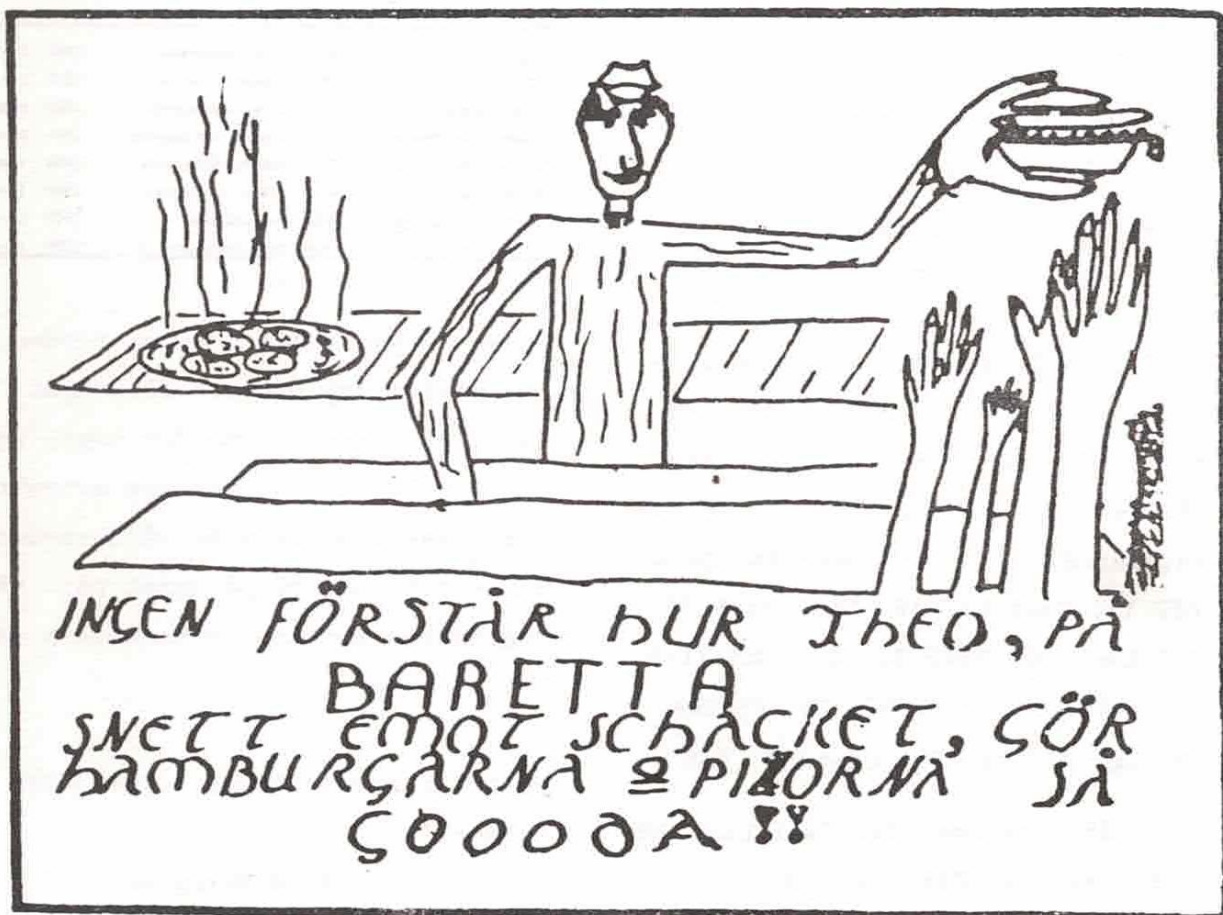 INGEN FÖRSTÅR HUR THEO, PÅ
BARETTA
SNETT EMOT SCHACKET, GÖR
HAMBURGARNA o PIZZORNA SÅ
GOOODA !!